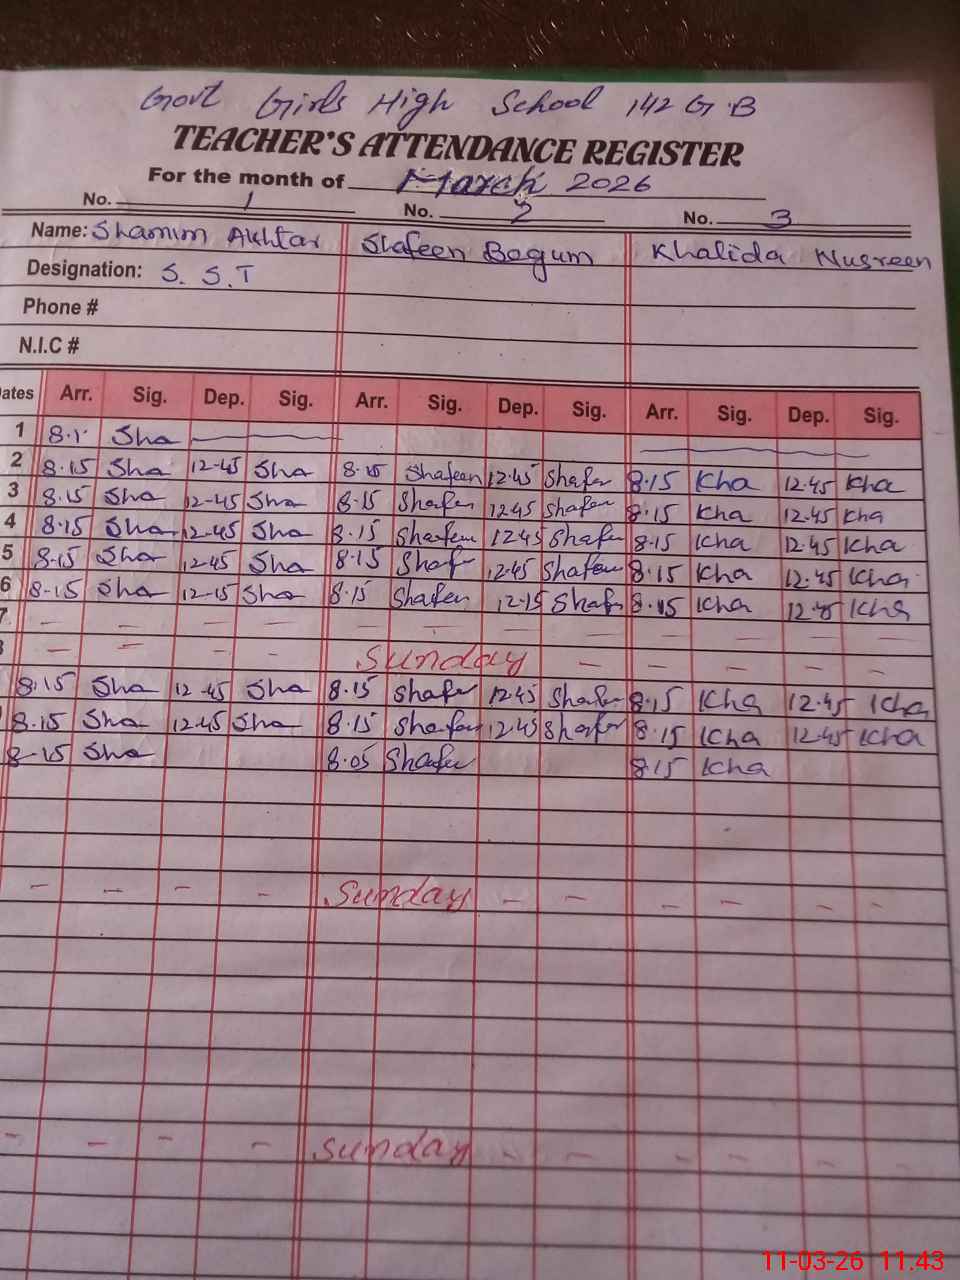 Govt Girls High School 142 G.B
TEACHER'S ATTENDANCE REGISTER
For the month of March 2026
No. 1 No. 2 No. 3
Name: Shamim Akhtar Shafeen Begum Khalida Nusreen
Designation: S.S.T
Phone #
N.I.C #
ates Arr. Sig. Dep. Sig. Arr. Sig. Dep. Sig. Arr. Sig. Dep. Sig.
1 8.1 Sha
2 8.15 Sha 12-45 Sha 8.15 Shafeen 12.45 Shafen 8.15 Kha 12.45 Kha
3 8.15 Sha 12-45 Sha 8.15 Shafen 12.45 Shafen 8.15 Kha 12.45 Kha
4 8.15 Sha 12.45 Sha 8.15 Shafeen 12.45 Shafen 8.15 Kha 12.45 Kha
5 8.15 Sha 12.45 Sha 8.15 Shaf 12.45 Shafeen 8.15 Kha 12.45 Kha
6 8.15 Sha 12-15 Sha 8.15 Shafen 12.15 Shafn 8.15 Kha 12.45 Kha
7 - - - - - - - - - - - -
- - - - Sunday - - - - -
8.15 Sha 12-45 Sha 8.15 Shafen 12.45 Shafen 8.15 Kha 12.45 Kha
8.15 Sha 12.45 Sha 8.15 Shafen 12.45 Shafen 8.15 Kha 12.45 Kha
8-15 Sha 8.05 Shafen 8.15 Kha
- - - - Sunday - - - - - -
- - - - Sunday - - - - - -
11-03-26 11.43